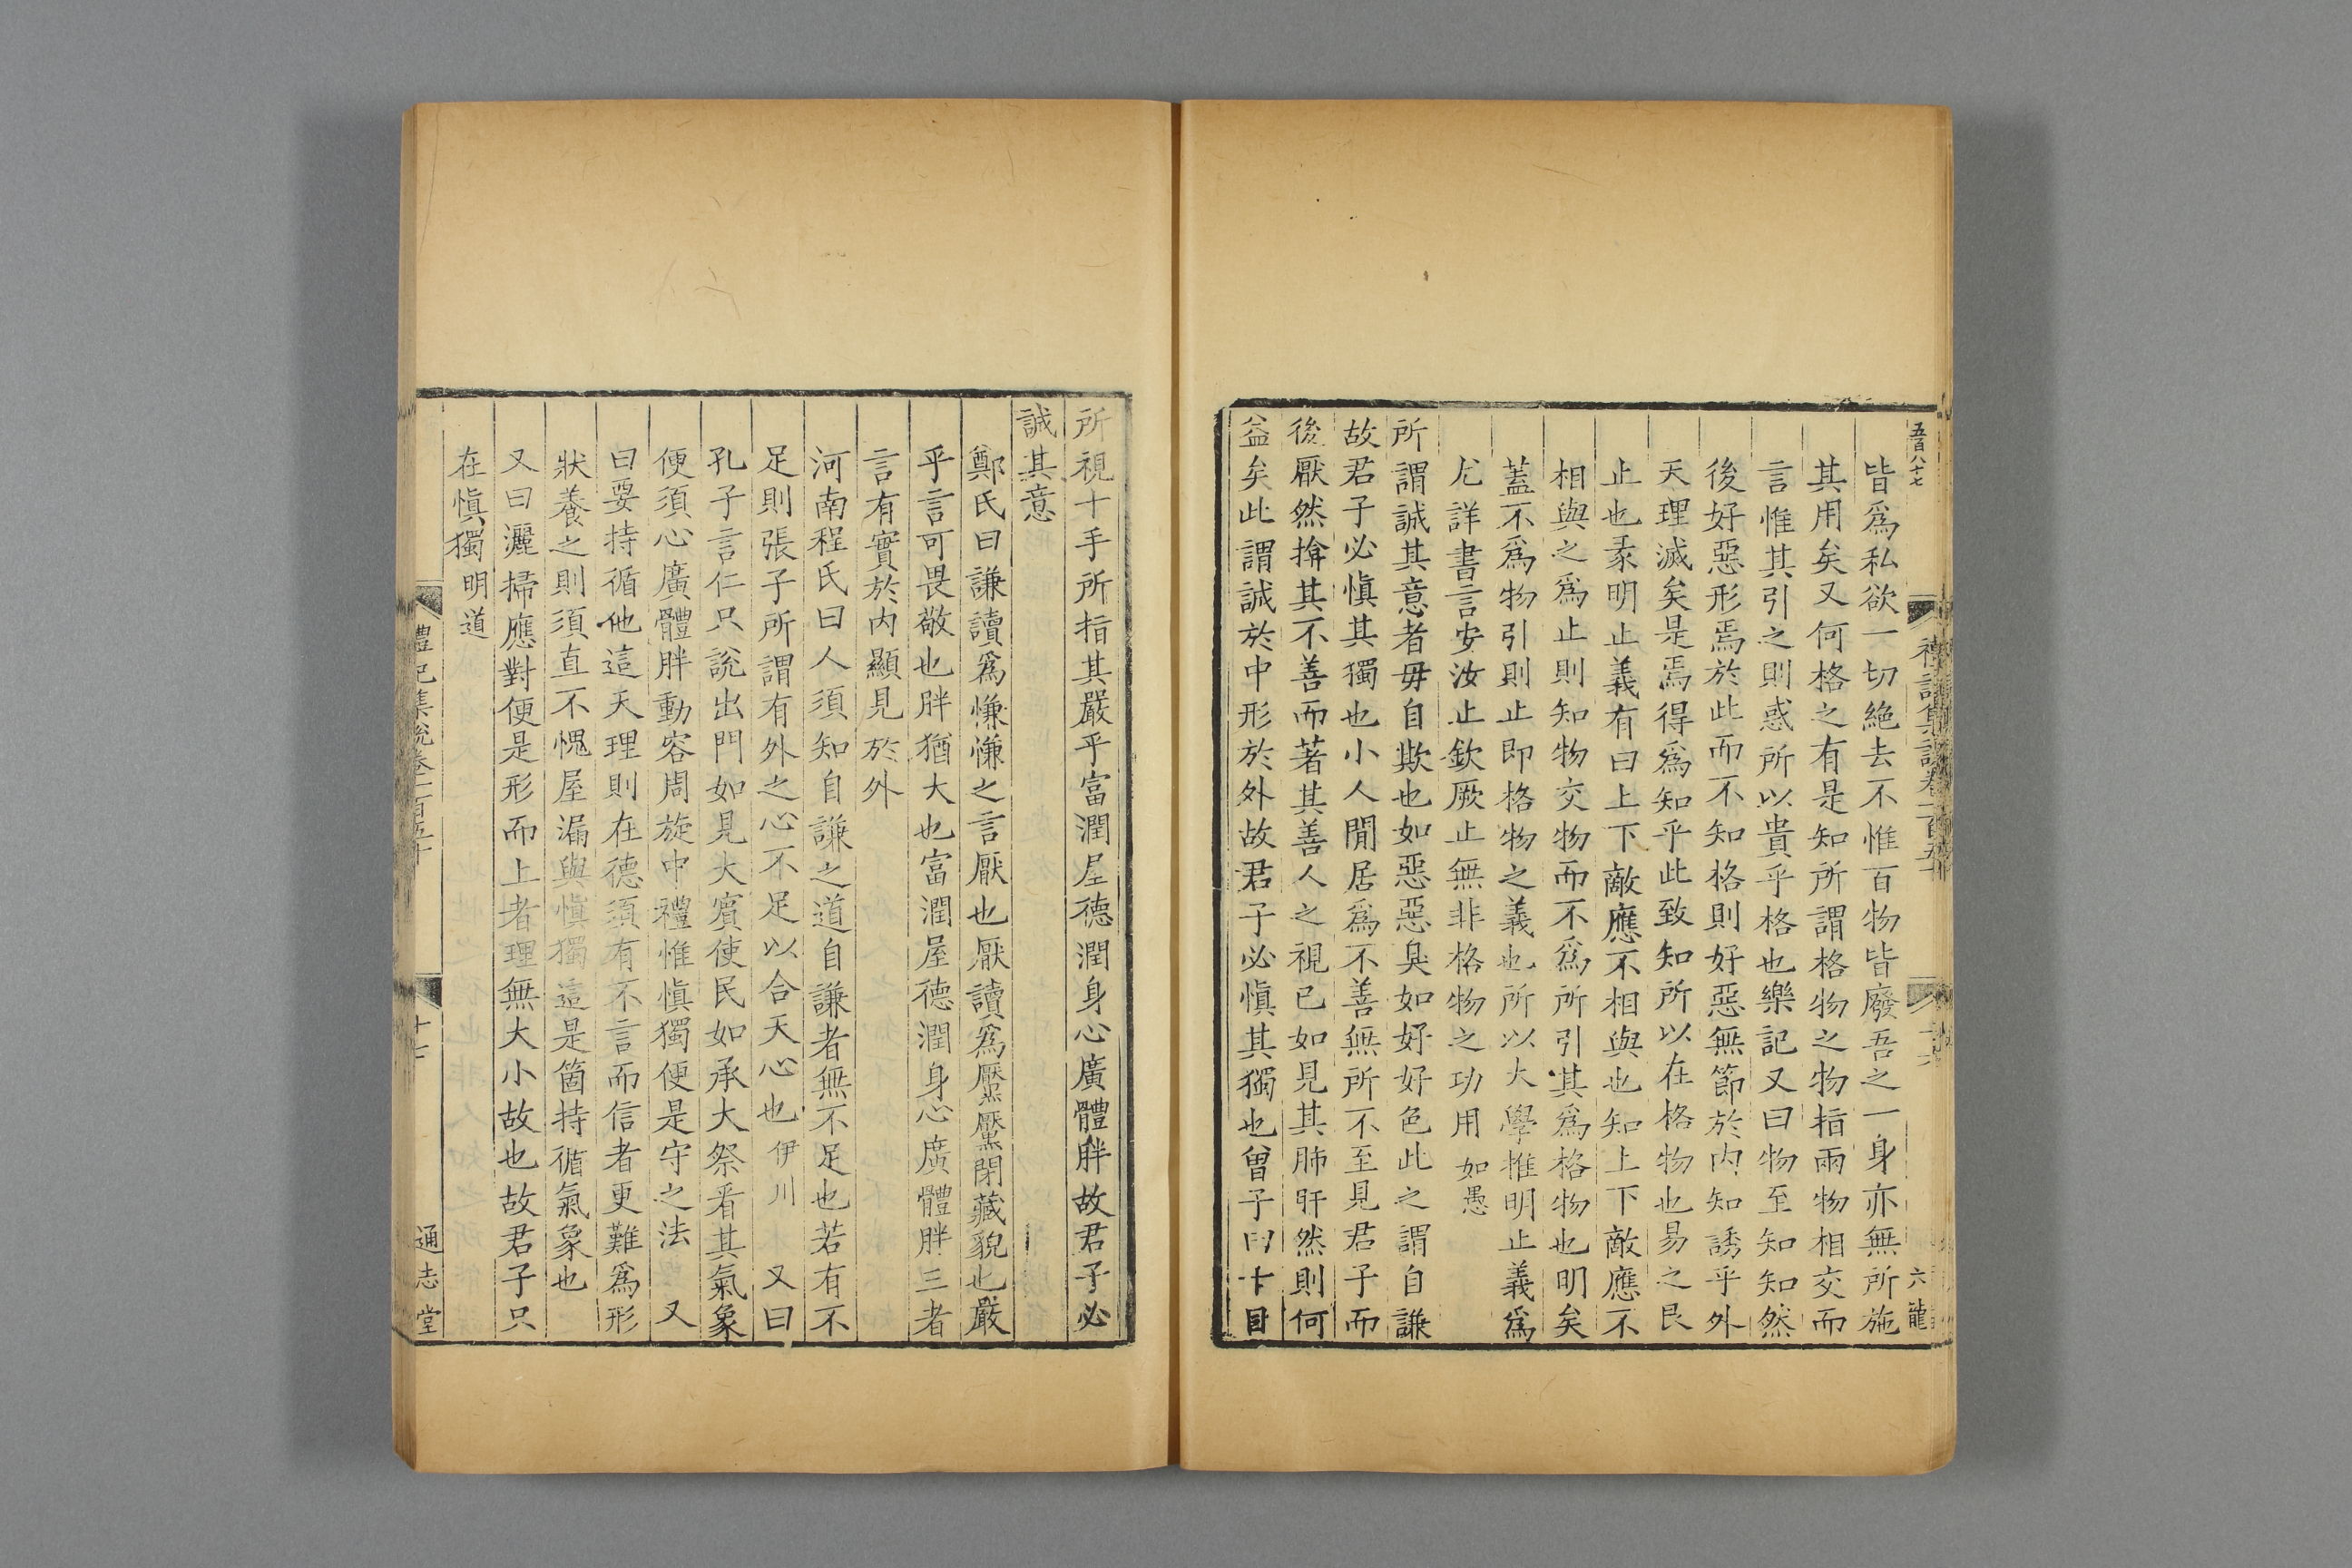 五百八十七
禮記集說卷一百五十
十六
六龍
皆爲私欲一切絶去不惟百物皆廢吾之一身亦無所施
其用矣又何格之有是知所謂格物之物指兩物相交而
言惟其引之則惑所以貴乎格也樂記又曰物至知知然
後好惡形焉於此而不知格則好惡無節於内知誘乎外
天理滅矣是焉得爲知乎此致知所以在格物也易之艮
止也彖明止義有曰上下敵應不相與也知上下敵應不
相與之爲止則知物交物而不爲所引其爲格物也明矣
蓋不爲物引則止即格物之義也所以大學推明止義爲
尤詳書言安汝止欽厥止無非格物之功用如愚
所謂誠其意者毋自欺也如惡惡臭如好好色此之謂自謙
故君子必愼其獨也小人閒居爲不善無所不至見君子而
後厭然揜其不善而著其善人之視已如見其肺肝然則何
益矣此謂誠於中形於外故君子必愼其獨也曾子曰十目
所視十手所指其嚴乎富潤屋德潤身心廣體胖故君子必
誠其意
鄭氏曰謙讀爲慊慊之言厭也厭讀爲黶黶閉藏貌也嚴
乎言可畏敬也胖猶大也富潤屋德潤身心廣體胖三者
言有實於内顯見於外
河南程氏曰人須知自謙之道自謙者無不足也若有不
足則張子所謂有外之心不足以合天心也伊川 又曰
孔子言仁只說出門如見大賓使民如承大祭看其氣象
便須心廣體胖動容周旋中禮惟愼獨便是守之法 又
曰要持循他這天理則在德須有不言而信者更難爲形
狀養之則須直不愧屋漏與愼獨這是箇持循氣象也
又曰灑掃應對便是形而上者理無大小故也故君子只
在愼獨明道
禮記集說卷一百五十
十七
通志堂